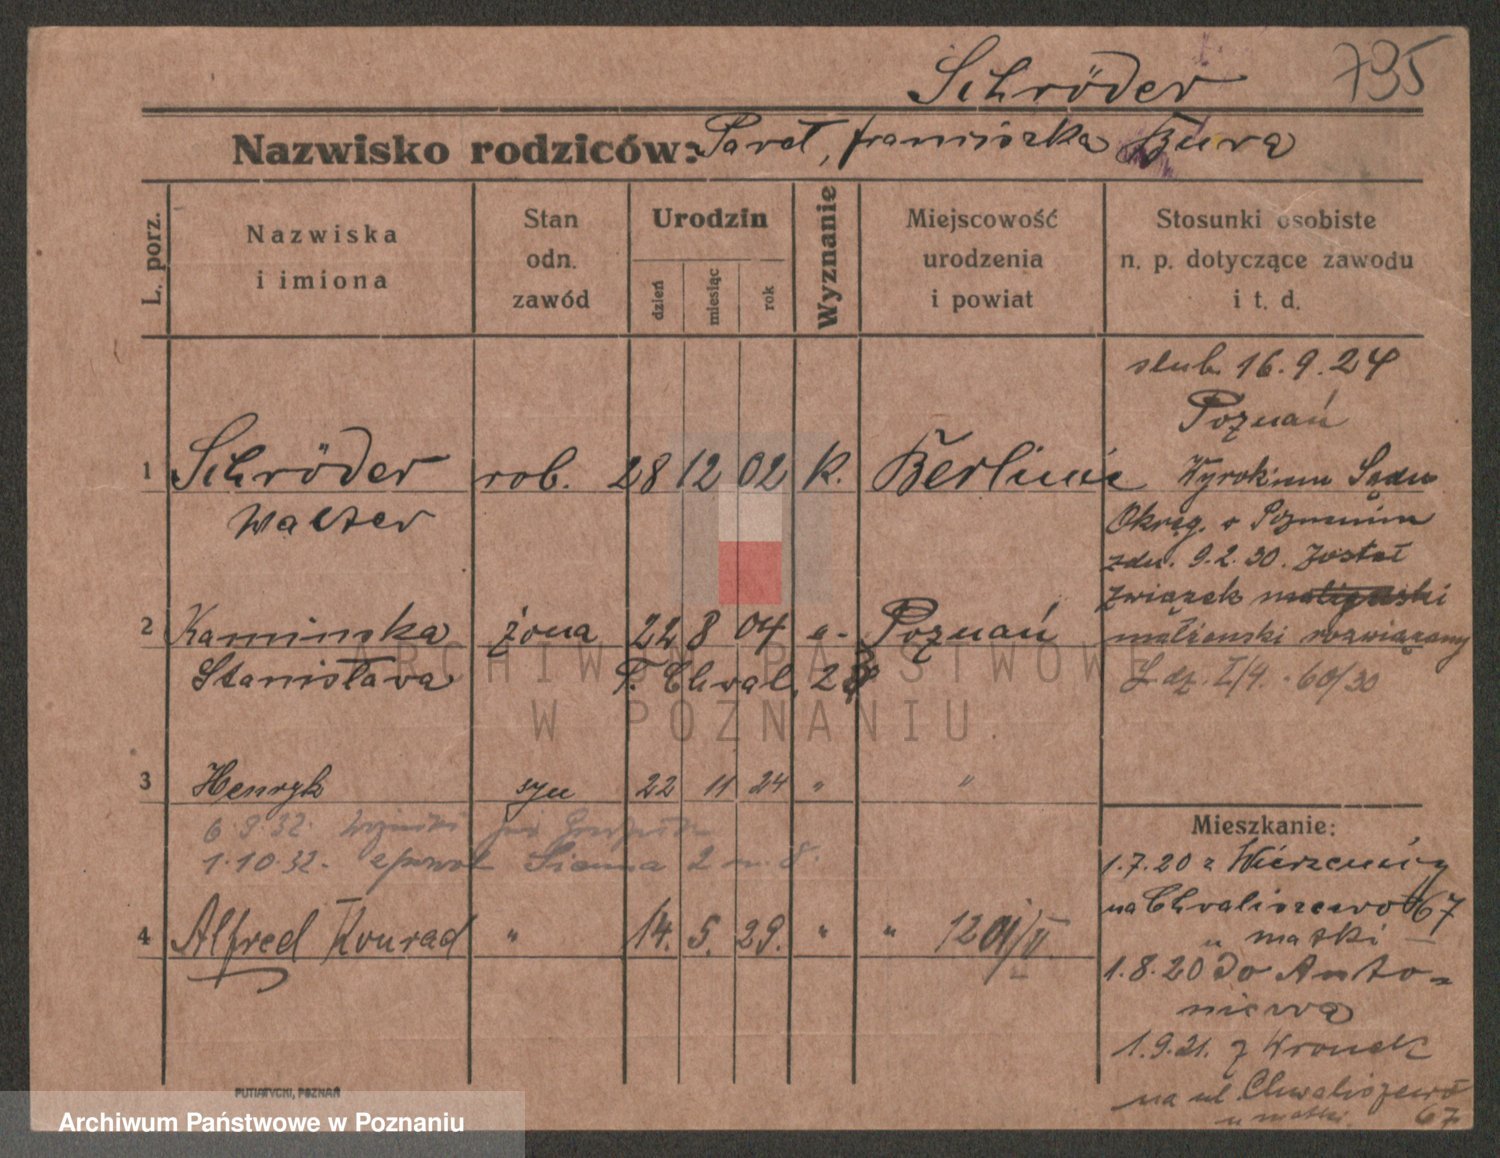 Schröder 735
Nazwisko rodziców: Paweł, Franciszka Bura
L. porz.
Nazwiska
i imiona
Stan
odn.
zawód
Urodzin
dzień
miesiąc
rok
Wyznanie
Miejscowość
urodzenia
i powiat
Stosunki osobiste
n. p. dotyczące zawodu
i t. d.
slub. 16.9.24
Poznań
1 Schröder rob. 28 12 02 K. Berlinie
Walter
Wyrokiem Sądu
Okręg. w Poznaniu
z dn. 9.2.30. został
związek
małżenski rozwiązany
L dz. I/4. 60/30
2 Kaminska żona 22 8 04 "- Poznań
Stanisława T. Chwal. 28
3 Henryk syn 22 11 24 " "
6.9.32.
1.10.32. Sienna 2 m. 8.
4 Alfred Konrad " 14. 5. 29. " " 1201/V.
Mieszkanie:
1.7.20 z
na Chwaliszewo 67
u matki
1.8.20 do Anto-
niewa
1.9.21. z Wronek
na ul. Chwaliszewo
u matki. 67
PUTIATYCKI, POZNAŃ
ARCHIWUM PAŃSTWOWE
W POZNANIU.
Archiwum Państwowe w Poznaniu